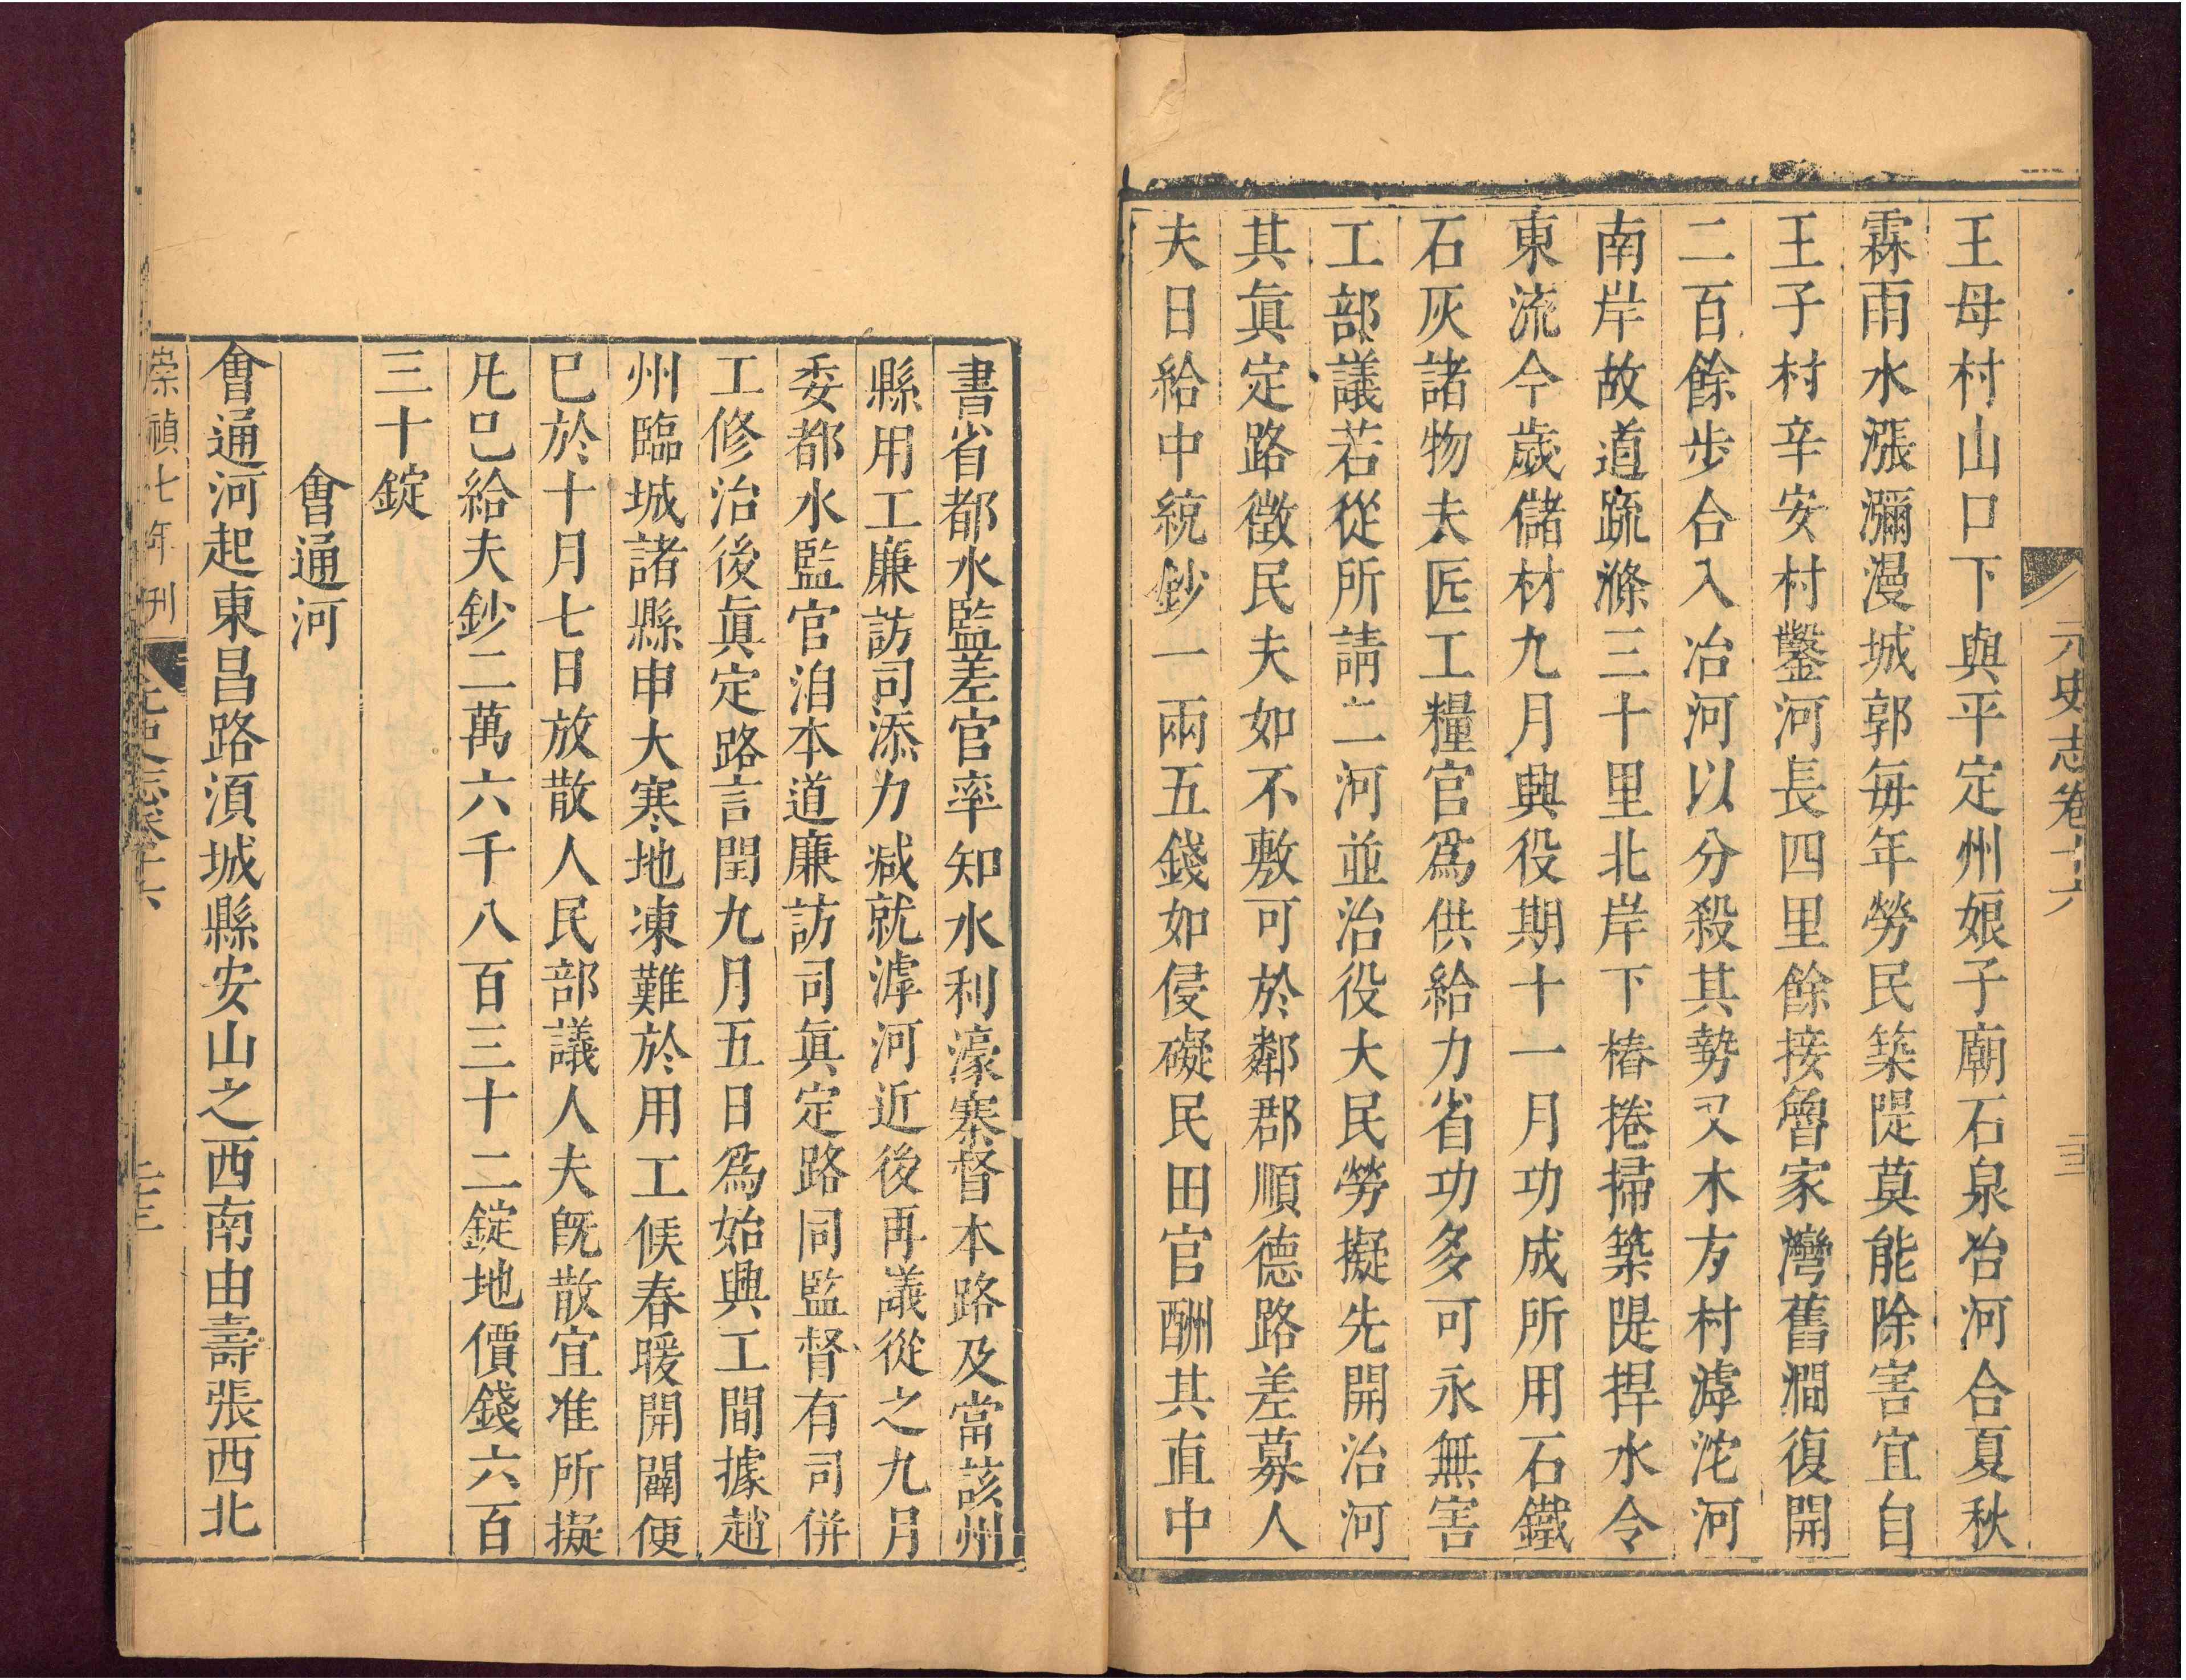 元史志卷十六
王母村山口下與平定州娘子廟石泉冶河合夏秋
霖雨水漲瀰漫城郭每年勞民築隄莫能除害宜自
王子村辛安村鑿河長四里餘接魯家灣舊澗復開
二百餘步合入冶河以分殺其勢又木方村滹沱河
南岸故道疏滌三十里北岸下樁捲掃築隄捍水令
東流今歲儲材九月興役期十一月功成所用石鐵
石灰諸物夫匠工糧官爲供給力省功多可永無害
工部議若從所請二河並治役大民勞擬先開治河
其眞定路徵民夫如不敷可於鄰郡順德路差募人
夫日給中統鈔一兩五錢如侵礙民田官酬其直中
書省都水監差官率知水利濠寨督本路及當該州
縣用工廉訪司添力減就滹河近後再議從之九月
委都水監官洎本道廉訪司眞定路同監督有司併
工修治後眞定路言閏九月五日爲始興工間據趙
州臨城諸縣申大寒地凍難於用工候春暖開闢便
已於十月七日放散人民部議人夫旣散宜准所擬
凡已給夫鈔二萬六千八百三十二錠地價錢六百
三十錠
會通河
會通河起東昌路須城縣安山之西南由壽張西北
崇禎七年刊
元史志卷十六